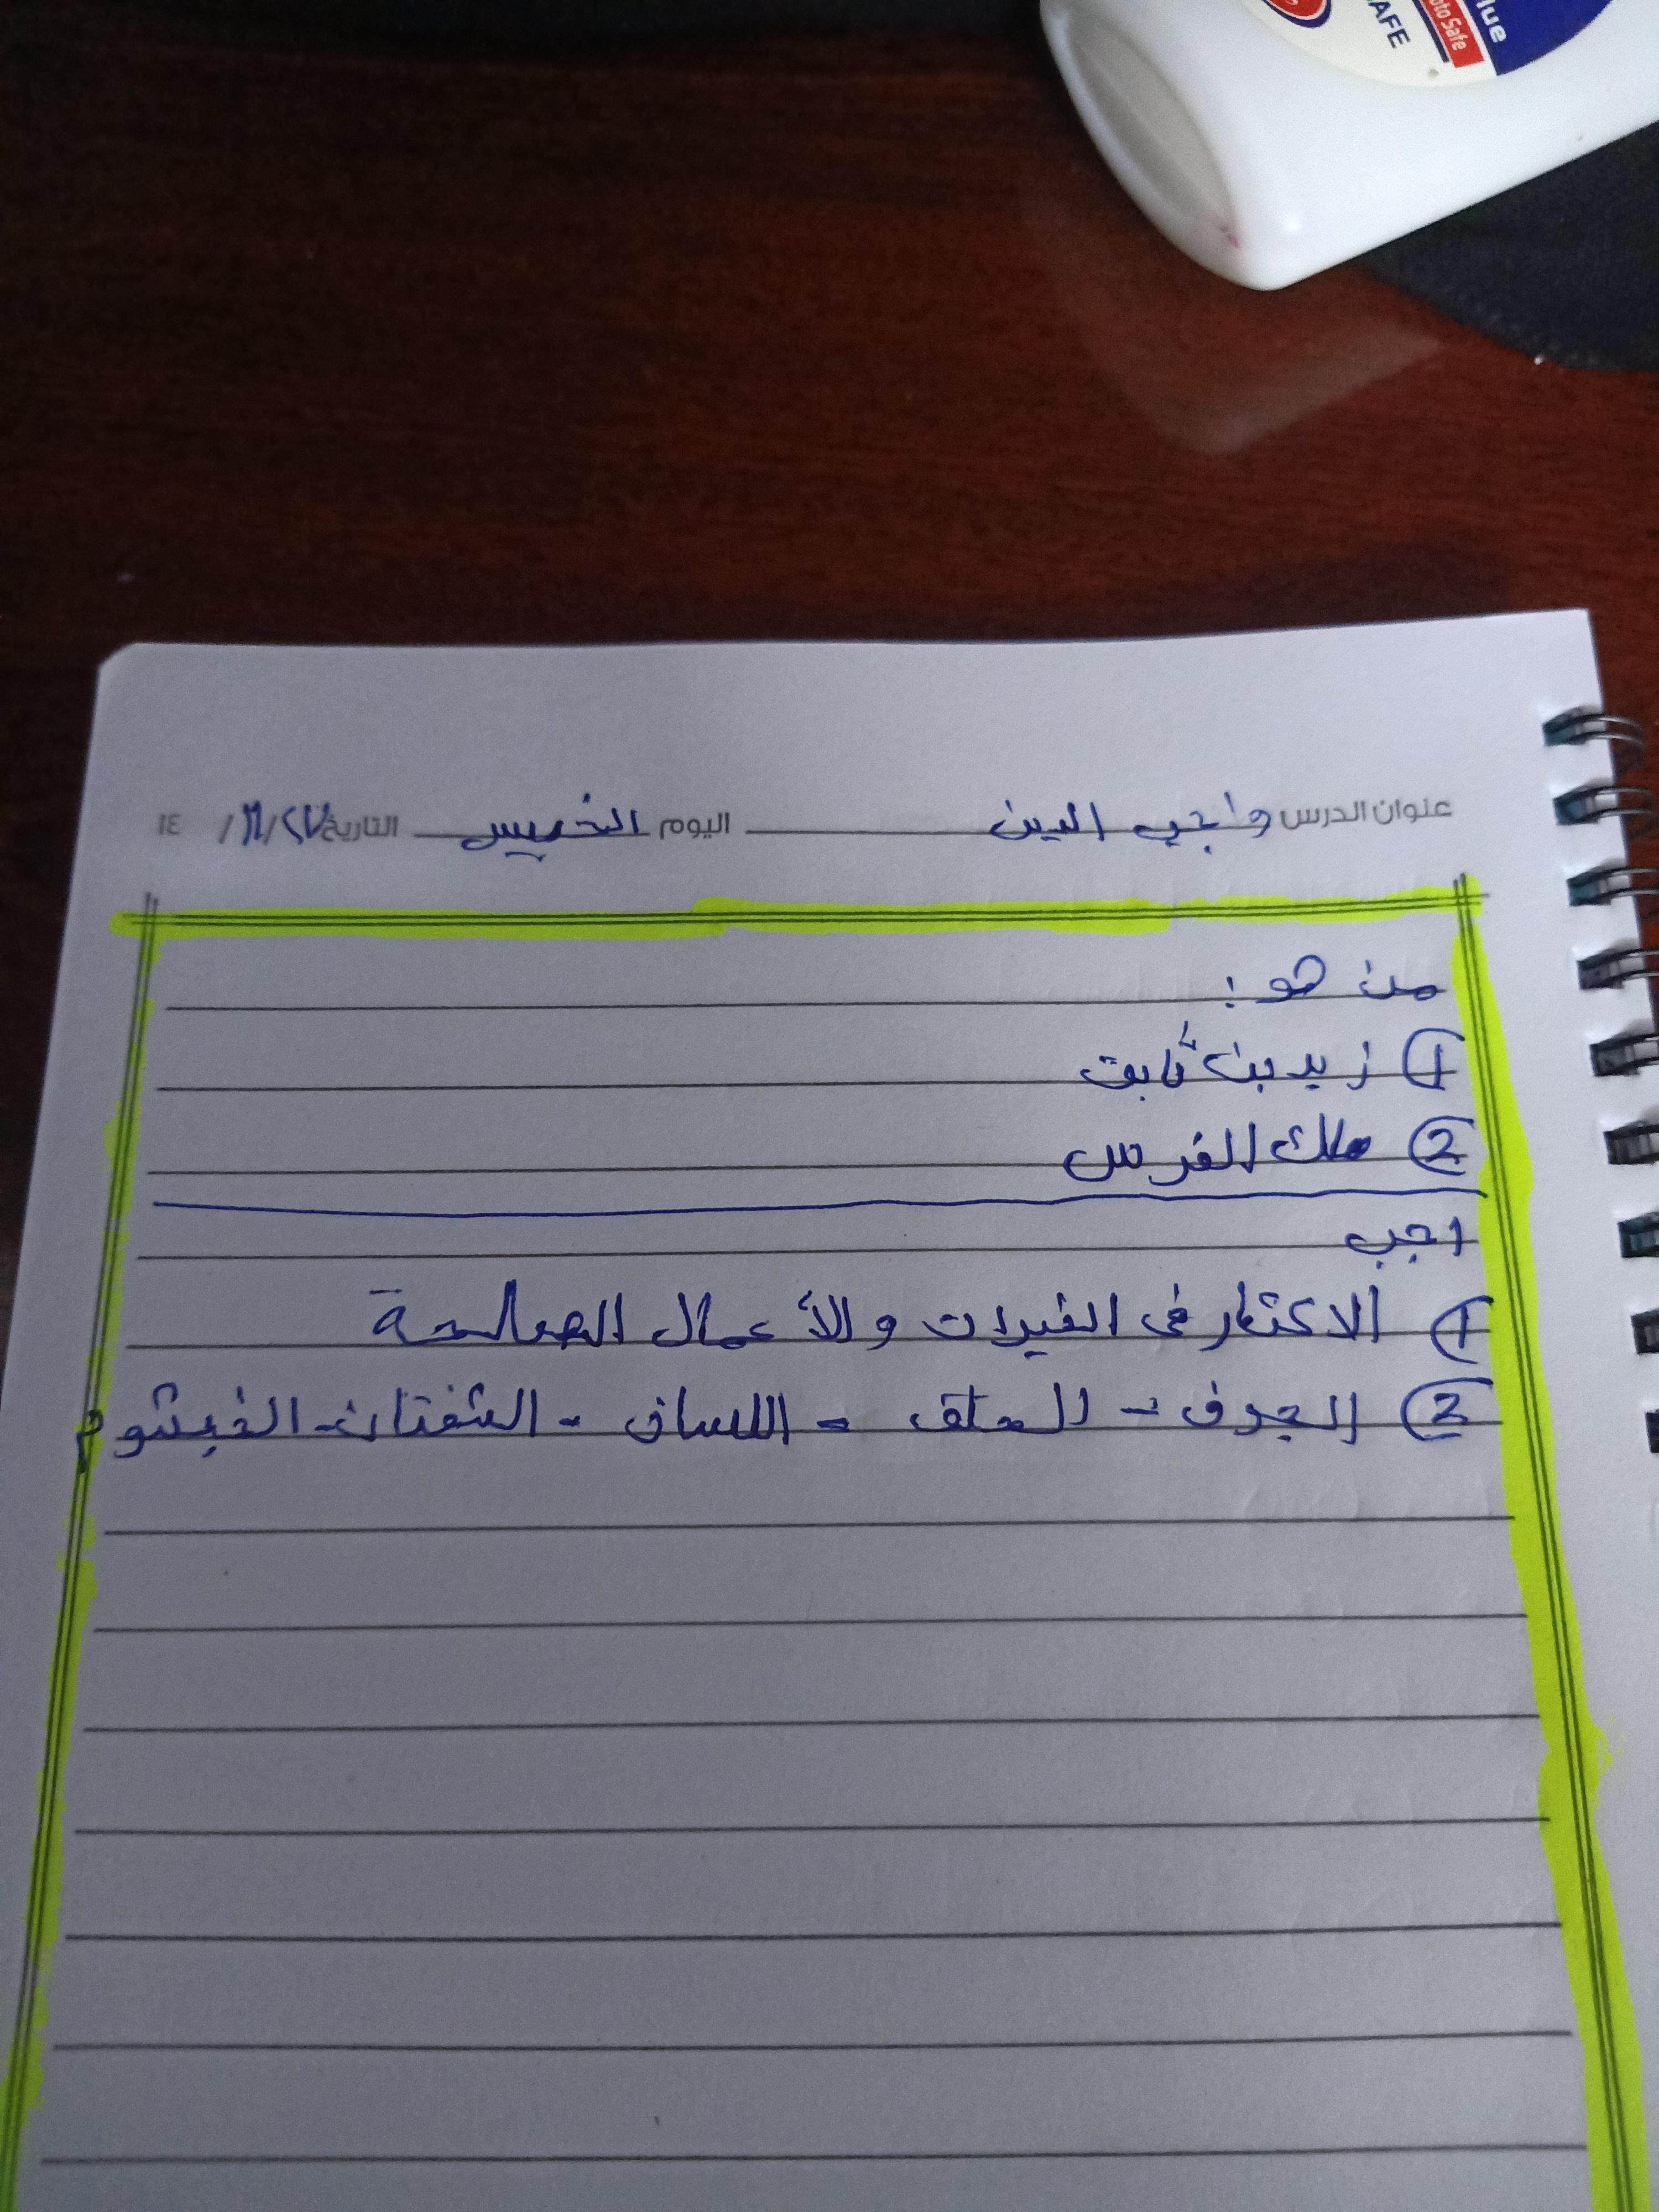 lue
oto Safe
AFE
عنوان الدرس واجب الدين اليوم الخميس التاريخ ٢٧/١١/ ١٤
من هو:
① زيد بن ثابت
② ملك الفرس
اجب
① الاكثار في الخيرات والأعمال الصالحة
② الجوف - الحلق - اللسان - الشفتان - الخيشوم